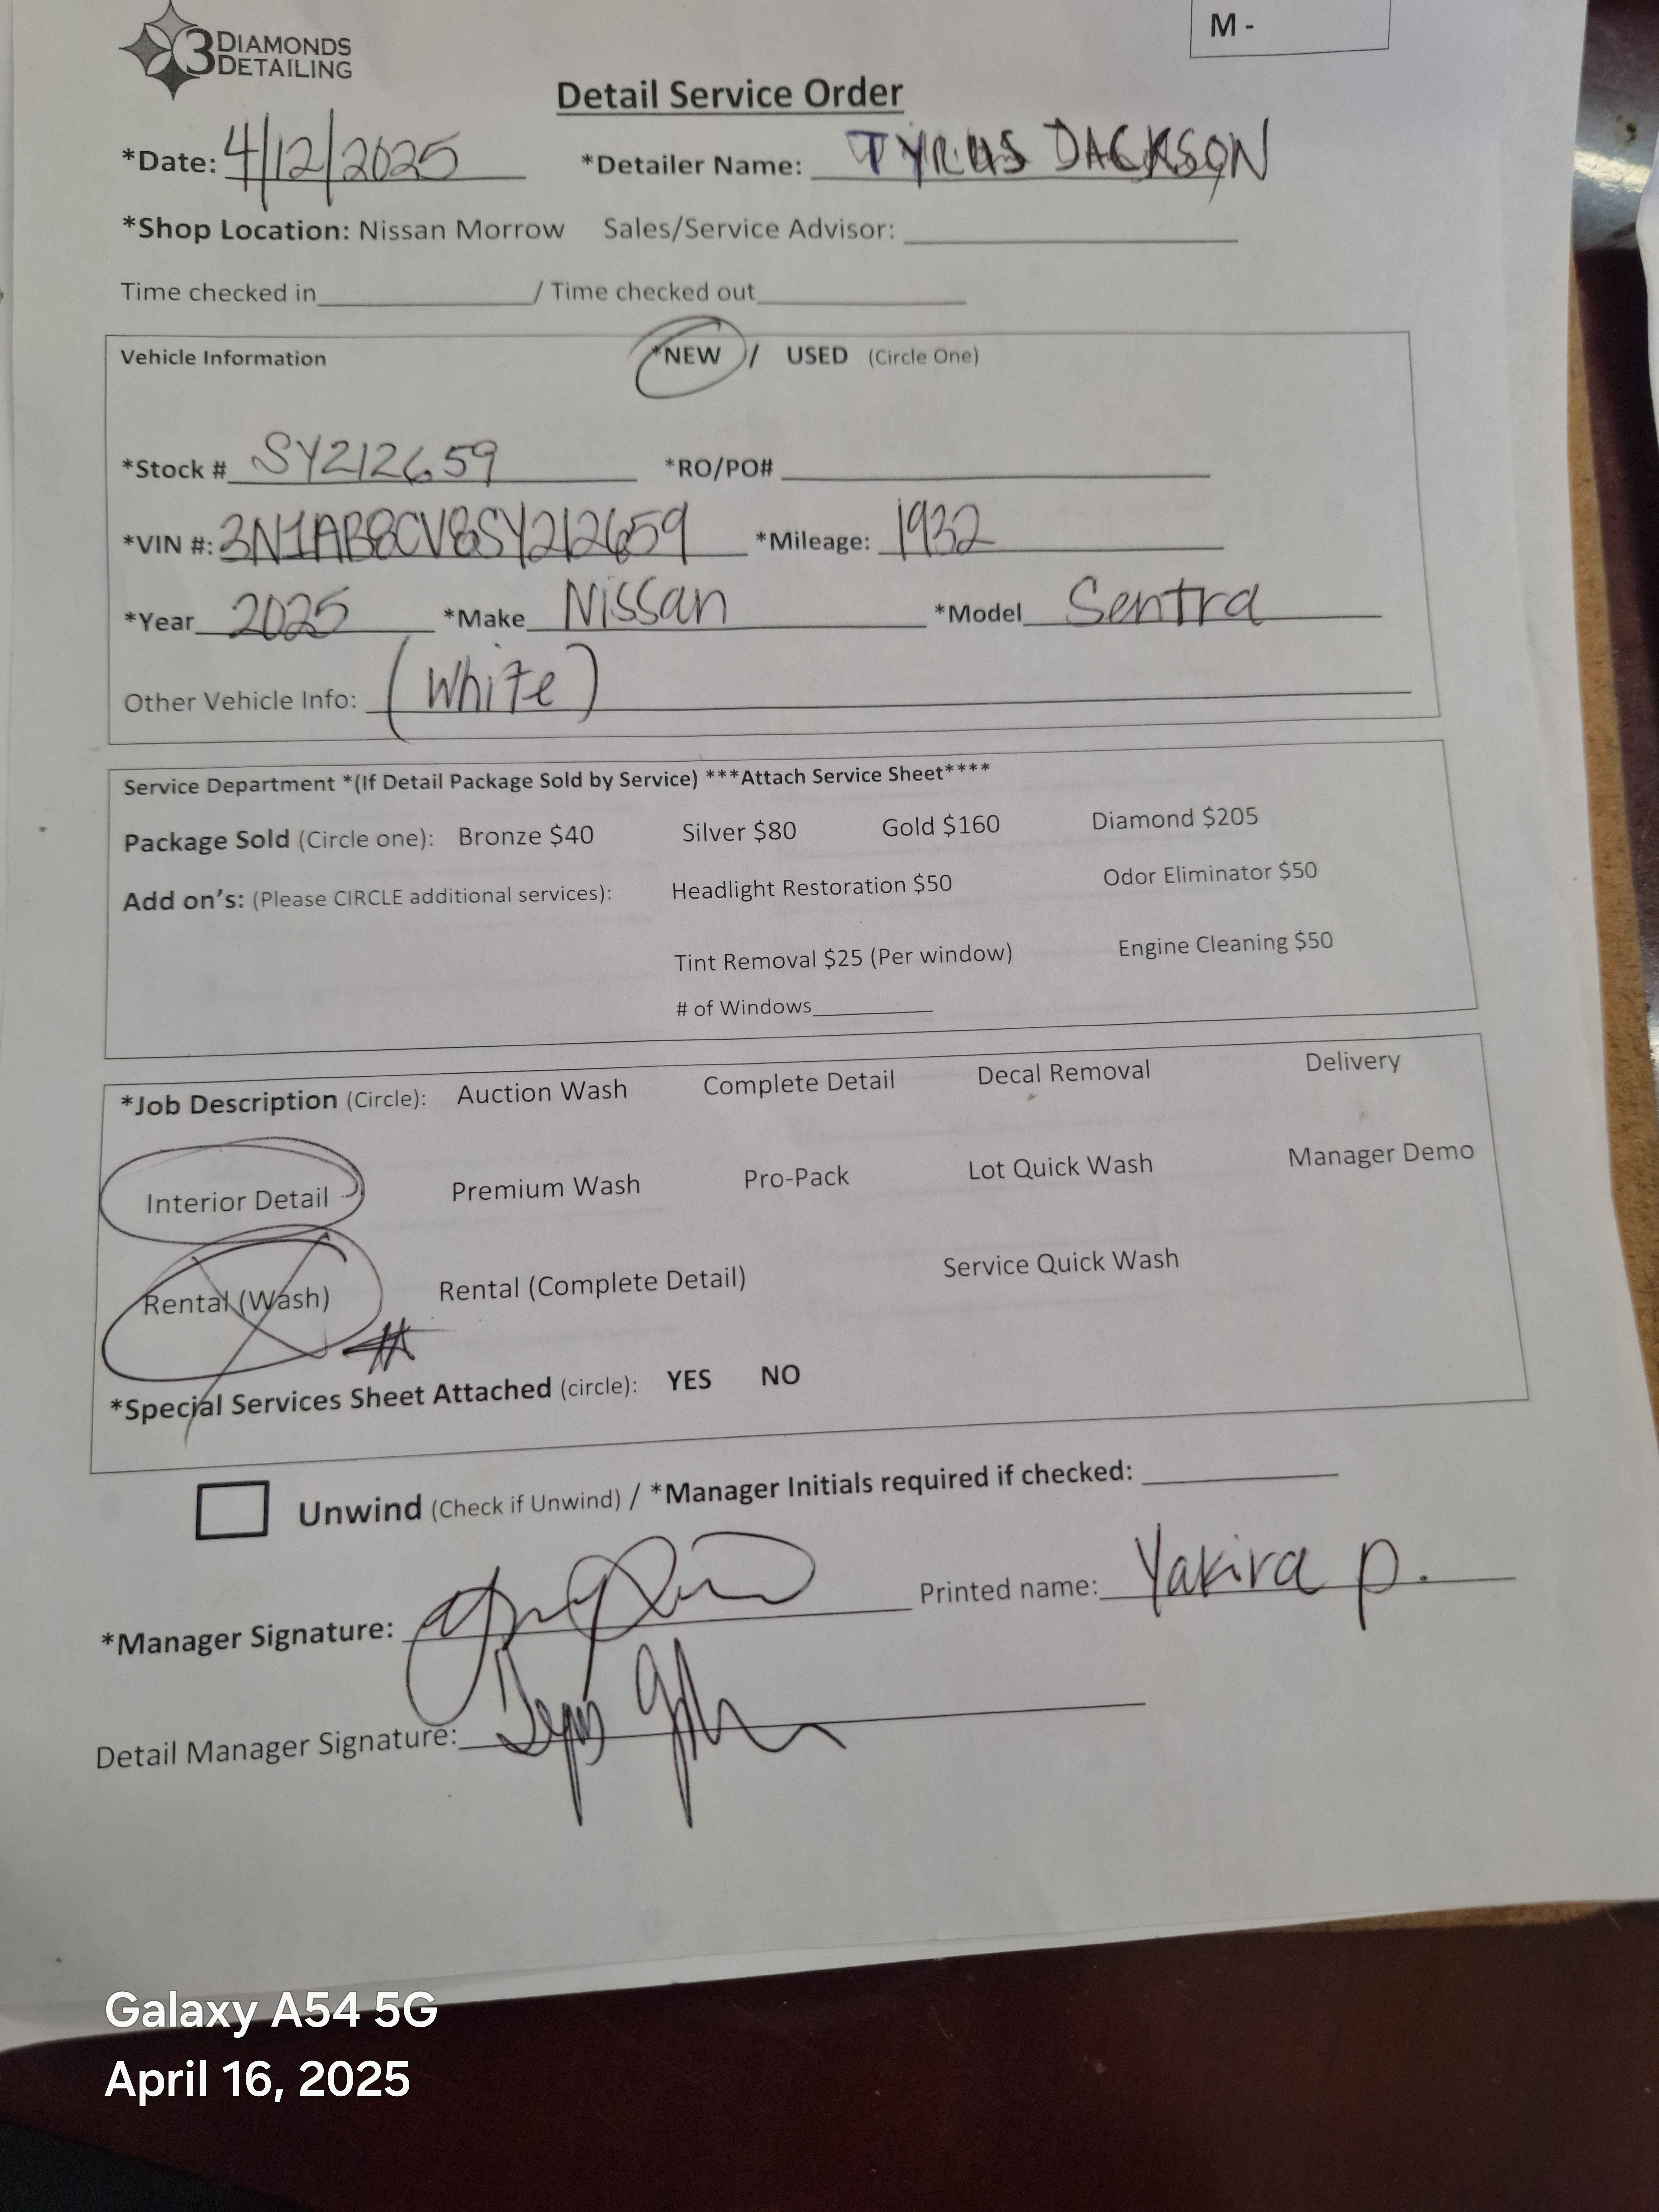 3 DIAMONDS
DETAILING
M -
Detail Service Order
*Date: 4/12/2025 *Detailer Name: TYRUS DACKSON
*Shop Location: Nissan Morrow Sales/Service Advisor:
Time checked in / Time checked out
Vehicle Information *NEW / USED (Circle One)
*Stock # SY212659 *RO/PO#
*VIN #: 3N1AB8CV8SY212659 *Mileage: 1932
*Year 2025 *Make Nissan *Model Sentra
Other Vehicle Info: (White)
Service Department *(If Detail Package Sold by Service) ***Attach Service Sheet****
Package Sold (Circle one): Bronze $40 Silver $80 Gold $160 Diamond $205
Add on's: (Please CIRCLE additional services): Headlight Restoration $50 Odor Eliminator $50
Tint Removal $25 (Per window) Engine Cleaning $50
# of Windows
*Job Description (Circle): Auction Wash Complete Detail Decal Removal Delivery
Interior Detail Premium Wash Pro-Pack Lot Quick Wash Manager Demo
Rental (Wash) Rental (Complete Detail) Service Quick Wash
*Special Services Sheet Attached (circle): YES NO
Unwind (Check if Unwind) / *Manager Initials required if checked:
*Manager Signature: Printed name: Yakira P.
Detail Manager Signature:
Galaxy A54 5G
April 16, 2025